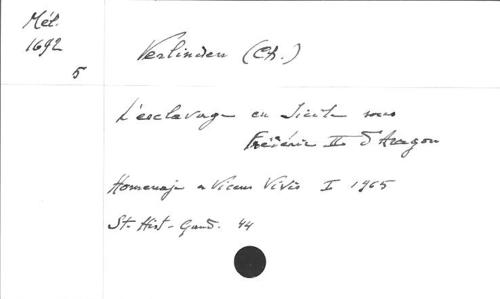 Mél.
1692
5
Verlinden (Ch.)
L'esclavage en Sicile sous
Frédéric II d'Aragon
Homenaje a Vicens Vivis I 1965
St. Hist. Gand. 44